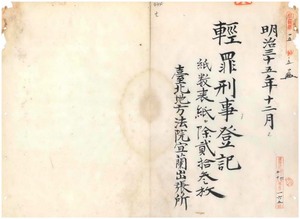 明治三十五年十二月
輕罪刑事登記
紙数表紙ヲ除貳拾叁枚
臺北地方法院宜蘭出張所